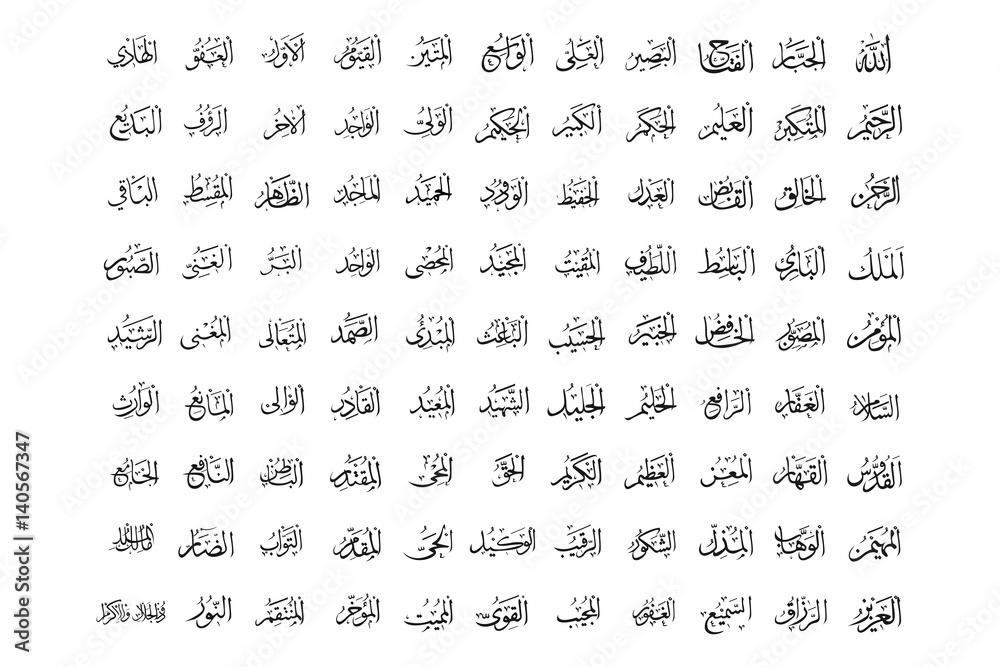 الله الجبار الفتاح البصير العلى الواسع المتين القيوم الأول العفو الهادي
الرحيم المتكبر العليم الحكم الكبير الحكيم الولي الواجد الآخر الرؤوف البديع
الرحمن الخالق القابض العدل الحفيظ الودود الحميد الماجد الظاهر المقسط الباقي
الملك البارئ الباسط اللطيف المقيت المجيد المحصى الواحد البر الغني الصبور
المؤمن المصور الخافض الخبير الحسيب الباعث المبدئ الصمد المتعالى المغنى الرشيد
السلام الغفار الرافع الحليم الجليل الشهيد المعيد القادر الوالى المانع الوارث
القدوس القهار المعز العظيم الكريم الحق المحي المقتدر الباطن النافع الجامع
المهيمن الوهاب المذل الشكور الرقيب الوكيل الحي المقدم التواب الضار مالك الملك
العزيز الرزاق السميع الغفور المجيب القوي المميت المؤخر المنتقم النور ذو الجلال والإكرام
Adobe Stock | #140567347
Adobe Stock